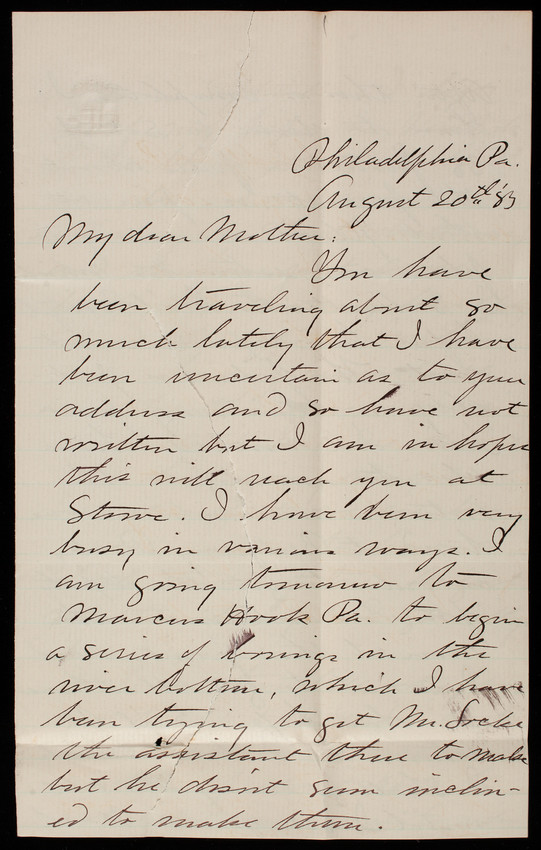 Philadelphia Pa.
August 20th '83
My dear Mother:
You have
been traveling about so
much lately that I have
been uncertain as to your
address and so have not
written but I am in hopes
this will reach you at
Stowe. I have been very
busy in various ways. I
am going tomorrow to
Marcus Hook Pa. to begin
a series of borings in the
river bottom, which I have
been trying to get Mr. Locke
the assistant there to make
but he disn't seem inclin-
ed to make them.